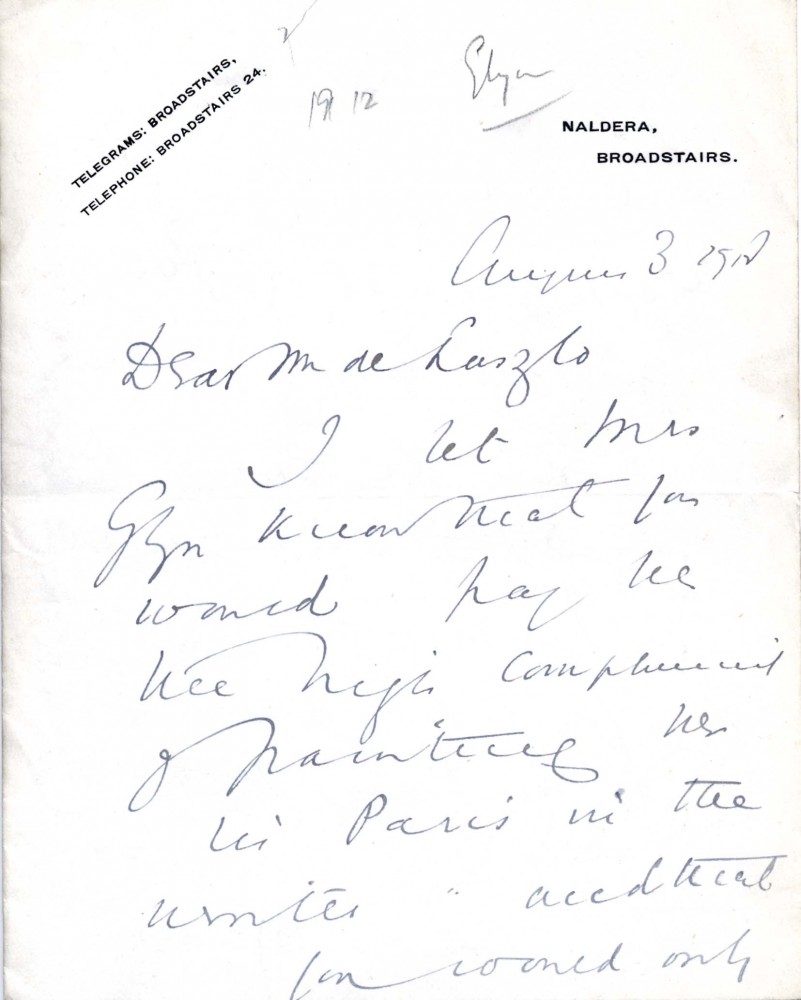 TELEGRAMS: BROADSTAIRS,
TELEPHONE: BROADSTAIRS 24.
1912
Glyn
NALDERA,
BROADSTAIRS.
August 3 1912
Dear Mr de Laszlo
I let Mrs
Glyn know that you
would pay her
the high compliment
of painting her
in Paris in the
winter and that
you would only